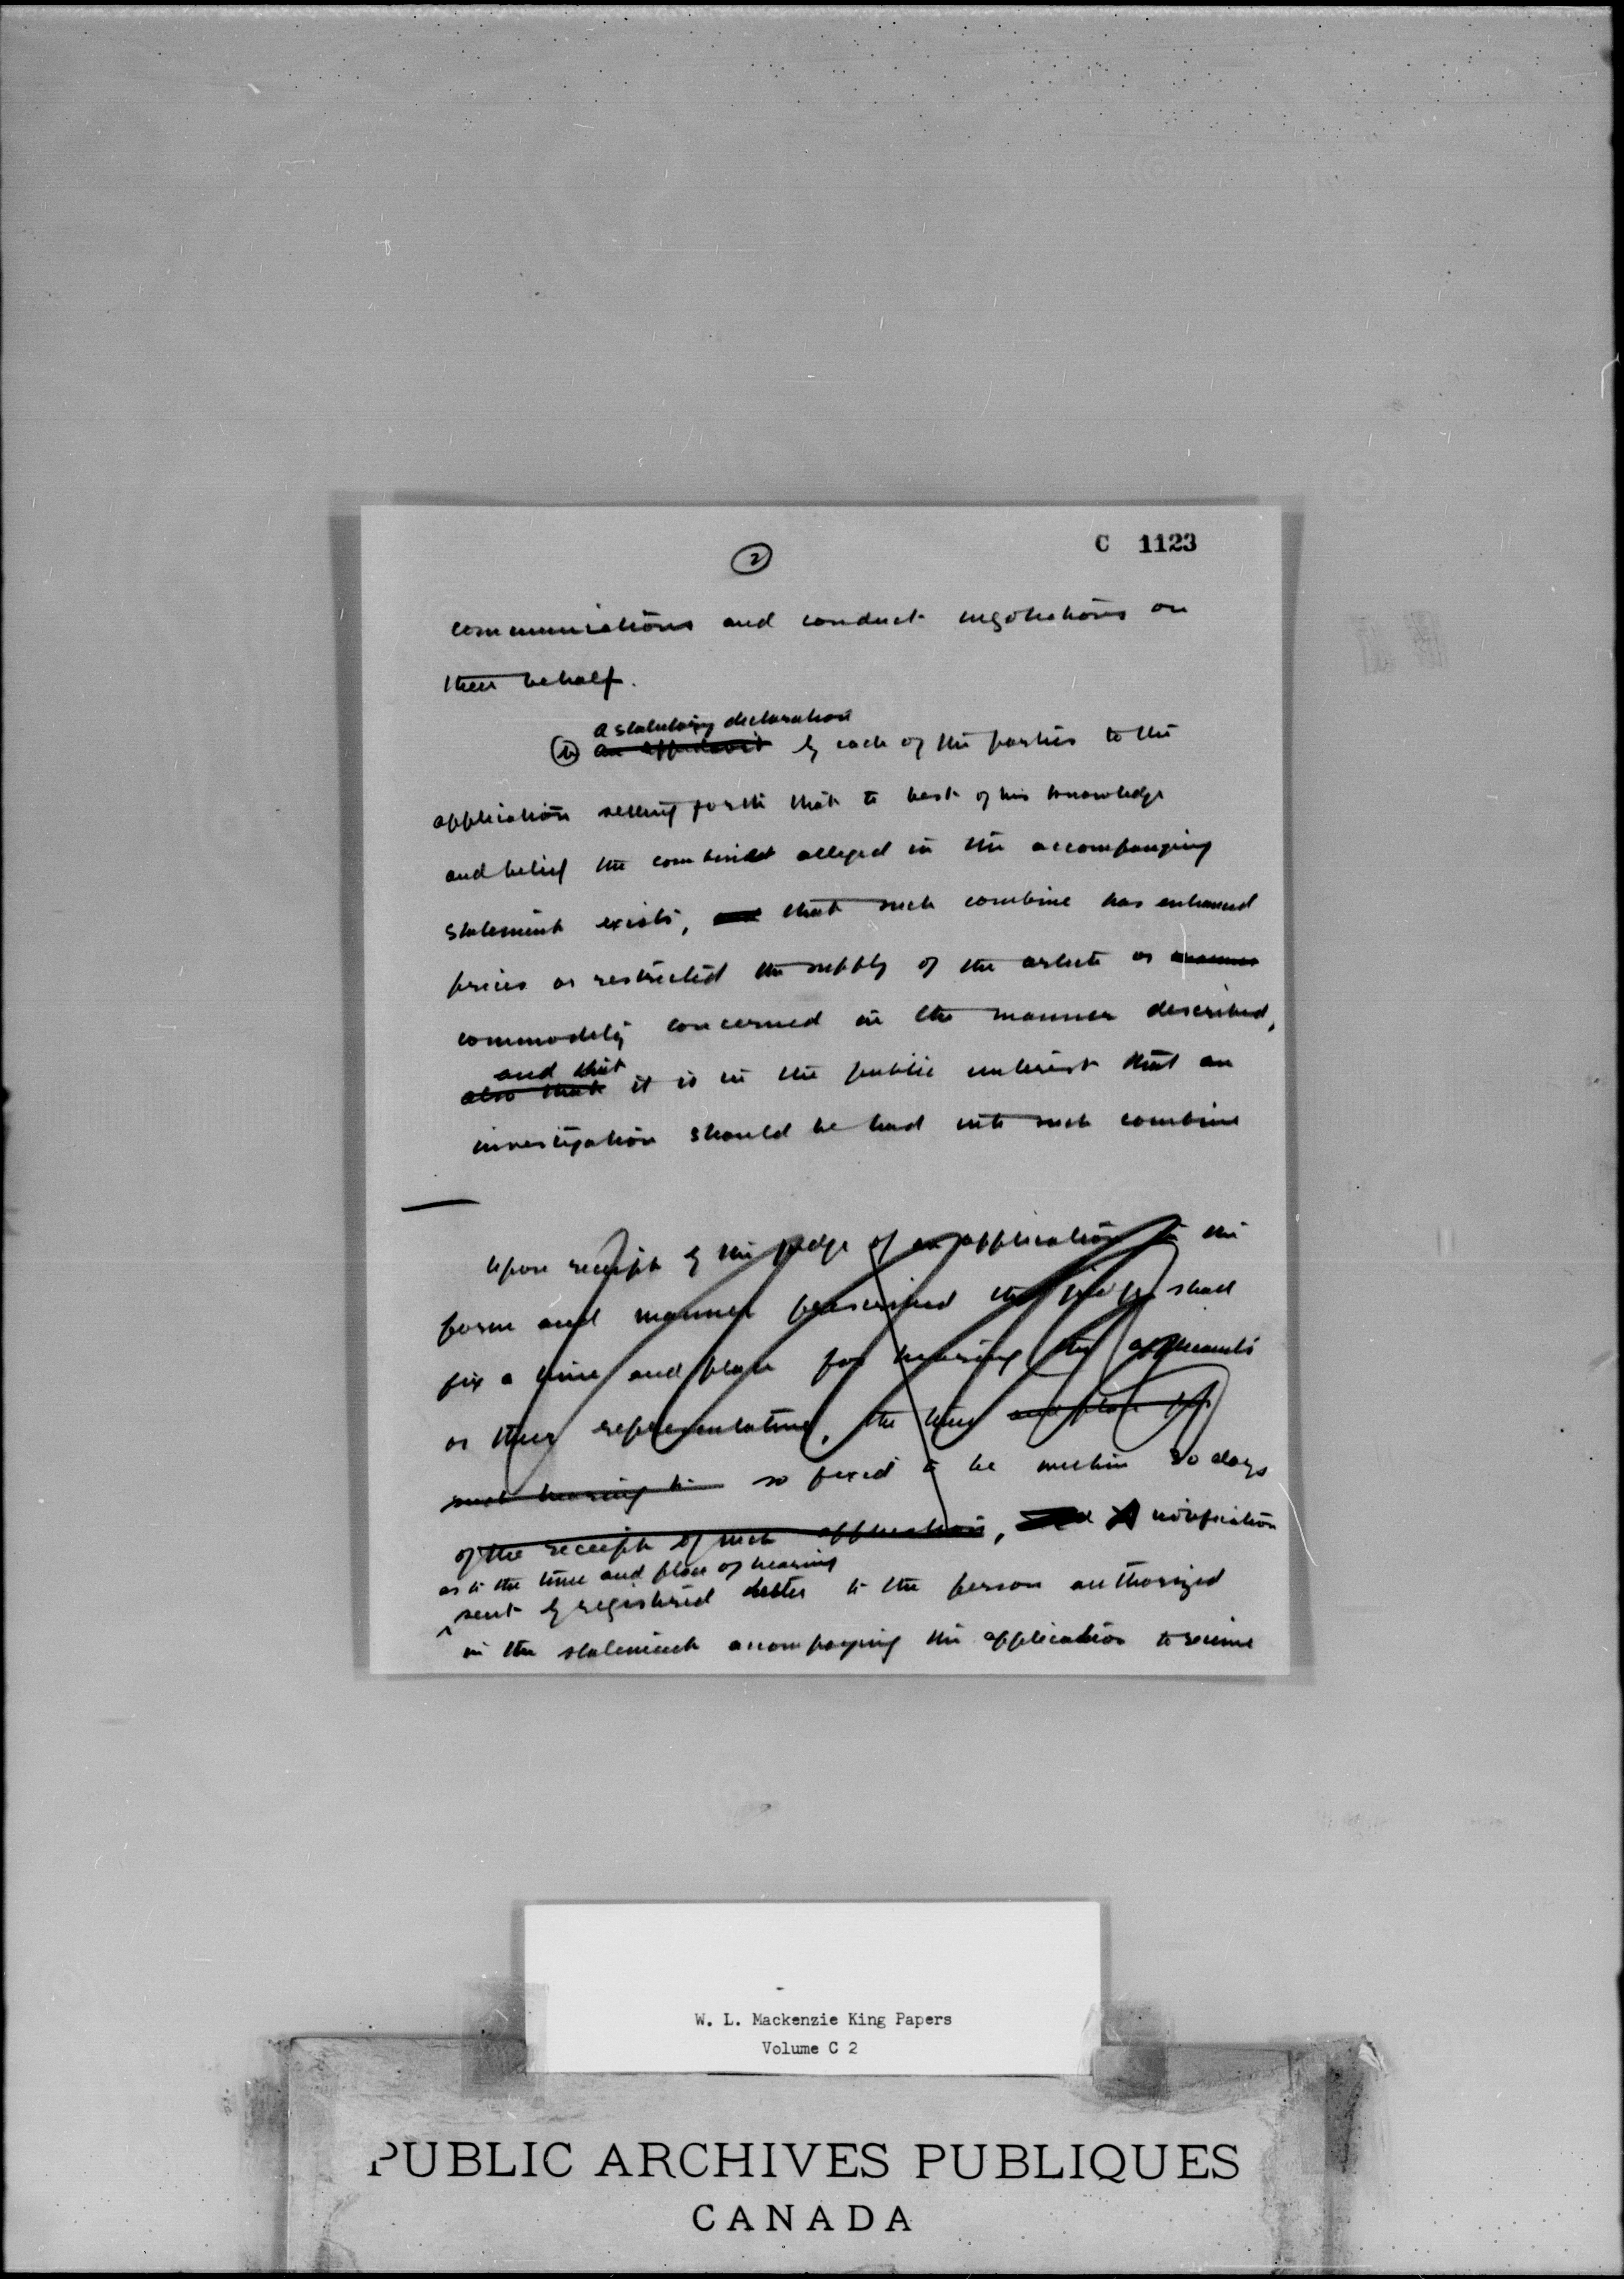 C 1123
2
communications and conduct negotiations on
their behalf.
a statutory declaration
(b) an affidavit by each of the parties to the
application setting forth that to best of his knowledge
and belief the combine alleged in the accompanying
statement exists, and that such combine has enhanced
prices or restricted the supply of the article or
commodity concerned in the manner described,
and that
also that it is in the public interest that an
investigation should be had into such combine
Upon receipt by the judge of an application in the
form and manner prescribed the judge shall
fix a time and place for hearing the applicants
or their representatives, the time and place of
such hearing to so fixed to be within 30 days
of the receipt of such application, and A notification
as to the time and place of hearing
sent by registered letter to the person authorized
in the statement accompanying the application to receive
W. L. Mackenzie King Papers
Volume C 2
PUBLIC ARCHIVES PUBLIQUES
CANADA